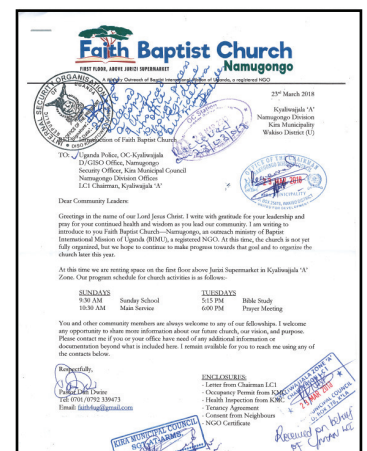 Faith Baptist Church
Namugongo
FIRST FLOOR, ABOVE JURIZI SUPERMARKET
A Ministry Outreach of Baptist International Mission of Uganda, a registered NGO
23rd March 2018
Kyaliwajjala 'A'
Namugongo Division
Kira Municipality
Wakiso District (U)
Introduction of Faith Baptist Church
TO: Uganda Police, OC-Kyaliwajjala
D/GISO Office, Namugongo
Security Officer, Kira Municipal Council
Namugongo Division Offices
LC1 Chairman, Kyaliwajjala 'A'
Dear Community Leaders:
Greetings in the name of our Lord Jesus Christ. I write with gratitude for your leadership and
pray for your continued health and wisdom as you lead our community. I am writing to
introduce to you Faith Baptist Church—Namugongo, an outreach ministry of Baptist
International Mission of Uganda (BIMU), a registered NGO. At this time, the church is not yet
fully organized, but we hope to continue to make progress towards that goal and to organize the
church later this year.
At this time we are renting space on the first floor above Jurizi Supermarket in Kyaliwajjala 'A'
Zone. Our program schedule for church activities is as follows:-
SUNDAYS
9:30 AM Sunday School
10:30 AM Main Service
TUESDAYS
5:15 PM Bible Study
6:00 PM Prayer Meeting
You and other community members are always welcome to any of our fellowships. I welcome
any opportunity to share more information about our future church, our vision, and purpose.
Please contact me if you or your office have need of any additional information or
documentation beyond what is included here. I remain available for you to reach me using any of
the contacts below.
Respectfully,
Pastor Dan Dwire
Tel: 0701/0792 339473
Email: faith4ug@gmail.com
ENCLOSURES:
- Letter from Chairman LC1
- Occupancy Permit from KMC
- Health Inspection from KMC
- Tenancy Agreement
- Consent from Neighbours
- NGO Certificate
KIRA MUNICIPAL COUNCIL
Received on behalf
of C/man LCI